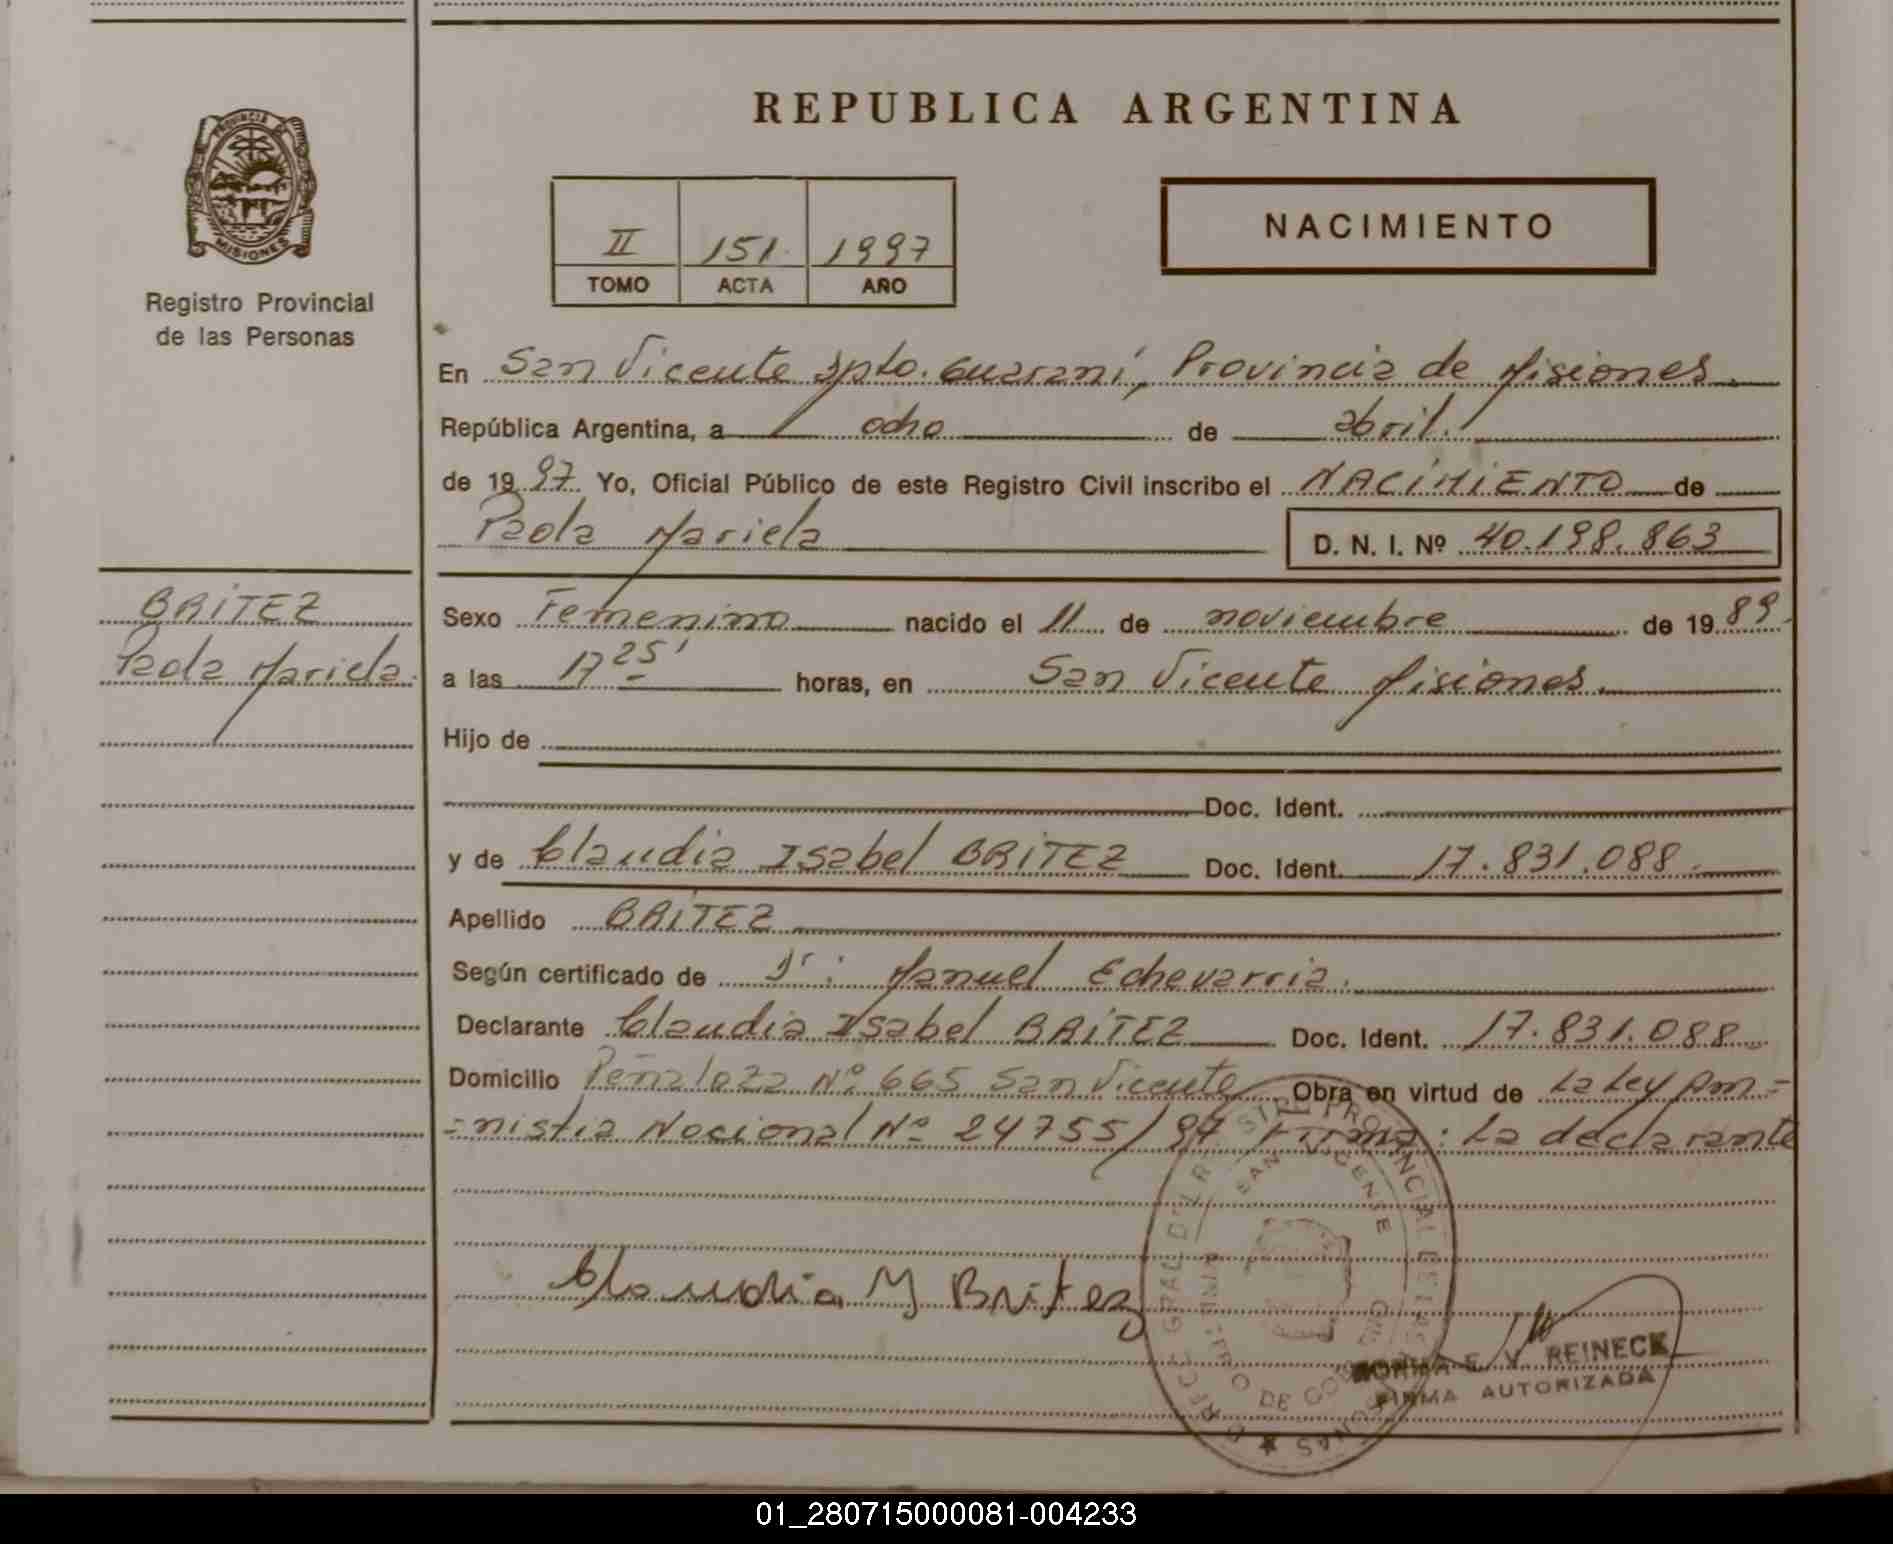 REPUBLICA ARGENTINA
PROVINCIA DE MISIONES
Registro Provincial
de las Personas
II 151 1997
TOMO ACTA AÑO
NACIMIENTO
En San Vicente Dpto. Guaraní, Provincia de Misiones.
República Argentina, a ocho de abril.
de 1997 Yo, Oficial Público de este Registro Civil inscribo el NACIMIENTO de
Paola Mariela D. N. I. Nº 40.198.863
BRITEZ
Paola Mariela.
Sexo Femenino nacido el 11 de noviembre de 1989.
a las 17 25' horas, en San Vicente Misiones.
Hijo de
Doc. Ident.
y de Claudia Isabel BRITEZ Doc. Ident. 17.831.088.
Apellido BRITEZ
Según certificado de Dr: Manuel Echevarria.
Declarante Claudia Isabel BRITEZ Doc. Ident. 17.831.088
Domicilio Peñaloza Nº 665 San Vicente Obra en virtud de La Ley Am=
=nistia Nacional Nº 24755/97 Firma: La declarante
Claudia Y Britez
SAN VICENTE
E. V. REINECK
FIRMA AUTORIZADA
01_280715000081-004233